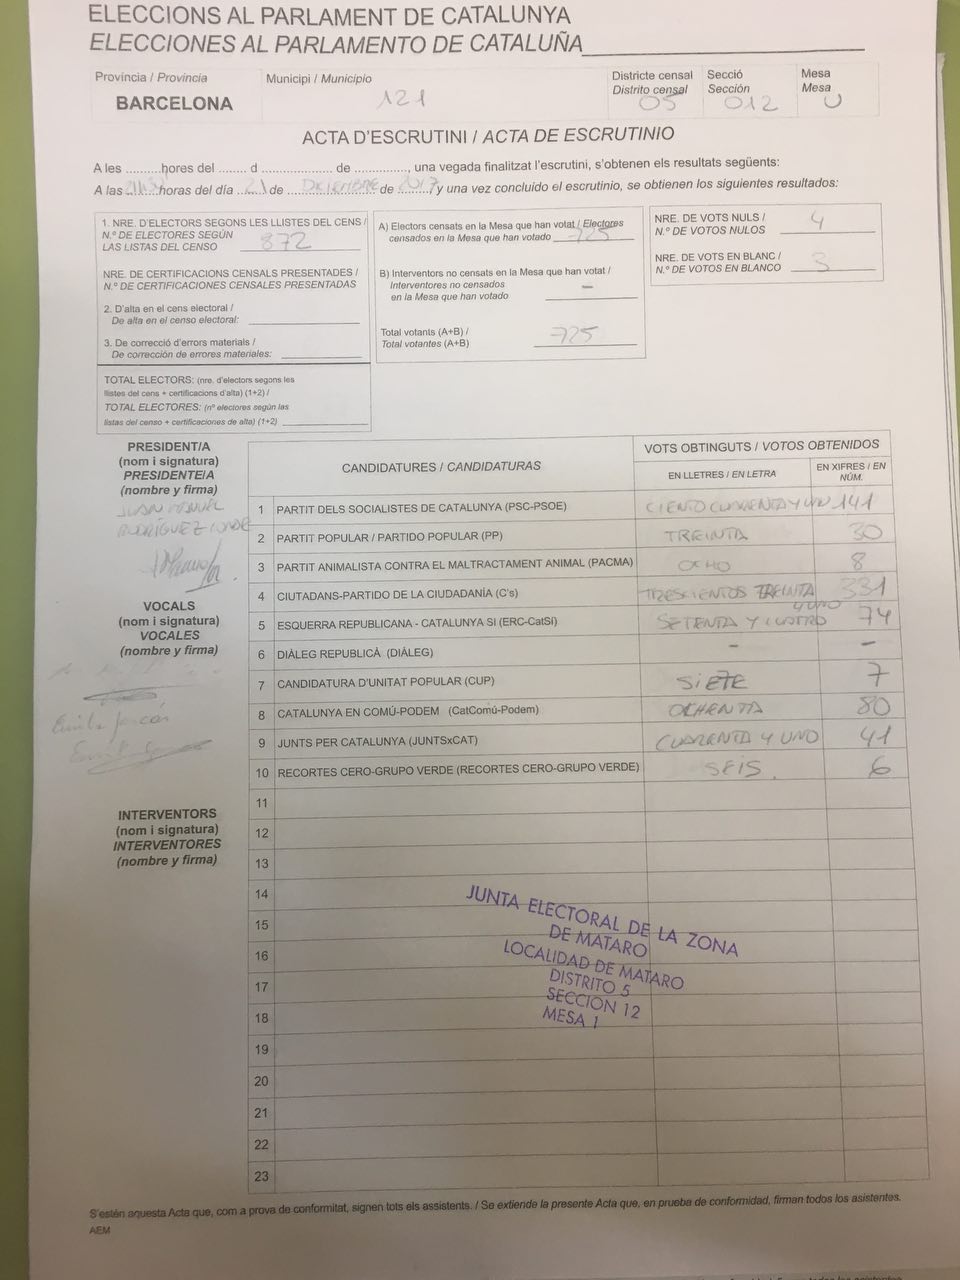 ELECCIONS AL PARLAMENT DE CATALUNYA
ELECCIONES AL PARLAMENTO DE CATALUÑA
Provincia / Provincia
BARCELONA
Municipi / Municipio
121
Districte censal
Distrito censal
05
Secció
Sección
012
Mesa
Mesa
U
ACTA D'ESCRUTINI / ACTA DE ESCRUTINIO
A les ..........hores del ........ d .................... de ..............., una vegada finalitzat l'escrutini, s'obtenen els resultats següents:
A las horas del día 21 de DICIEMBRE de 2017 y una vez concluido el escrutinio, se obtienen los siguientes resultados:
1. NRE. D'ELECTORS SEGONS LES LLISTES DEL CENS /
N.º DE ELECTORES SEGÚN
LAS LISTAS DEL CENSO 872
NRE. DE CERTIFICACIONS CENSALS PRESENTADES /
N.º DE CERTIFICACIONES CENSALES PRESENTADAS
2. D'alta en el cens electoral /
De alta en el censo electoral:
3. De correcció d'errors materials /
De corrección de errores materiales:
TOTAL ELECTORS: (nre. d'electors segons les
llistes del cens + certificacions d'alta) (1+2) /
TOTAL ELECTORES: (nº electores según las
listas del censo + certificaciones de alta) (1+2)
A) Electors censats en la Mesa que han votat / Electores
censados en la Mesa que han votado 725
B) Interventors no censats en la Mesa que han votat /
Interventores no censados
en la Mesa que han votado -
Total votants (A+B) /
Total votantes (A+B) 725
NRE. DE VOTS NULS /
N.º DE VOTOS NULOS 4
NRE. DE VOTS EN BLANC /
N.º DE VOTOS EN BLANCO 3
PRESIDENT/A
(nom i signatura)
PRESIDENTE/A
(nombre y firma)
JUAN MANUEL
RODRÍGUEZ
VOCALS
(nom i signatura)
VOCALES
(nombre y firma)
INTERVENTORS
(nom i signatura)
INTERVENTORES
(nombre y firma)
CANDIDATURES / CANDIDATURAS
VOTS OBTINGUTS / VOTOS OBTENIDOS
EN LLETRES / EN LETRA
EN XIFRES / EN NÚM.
1 PARTIT DELS SOCIALISTES DE CATALUNYA (PSC-PSOE) CIENTO CUARENTA Y UNO 141
2 PARTIT POPULAR / PARTIDO POPULAR (PP) TREINTA 30
3 PARTIT ANIMALISTA CONTRA EL MALTRACTAMENT ANIMAL (PACMA) OCHO 8
4 CIUTADANS-PARTIDO DE LA CIUDADANÍA (C's) TRESCIENTOS TREINTA Y UNO 331
5 ESQUERRA REPUBLICANA - CATALUNYA SI (ERC-CatSI) SETENTA Y CUATRO 74
6 DIÀLEG REPUBLICÀ (DIÀLEG) - -
7 CANDIDATURA D'UNITAT POPULAR (CUP) SIETE 7
8 CATALUNYA EN COMÚ-PODEM (CatComú-Podem) OCHENTA 80
9 JUNTS PER CATALUNYA (JUNTSxCAT) CUARENTA Y UNO 41
10 RECORTES CERO-GRUPO VERDE (RECORTES CERO-GRUPO VERDE) SEIS. 6
11
12
13
14
15
16
17
18
19
20
21
22
23
JUNTA ELECTORAL DE LA ZONA
DE MATARO
LOCALIDAD DE MATARO
DISTRITO 5
SECCION 12
MESA 1
S'estén aquesta Acta que, com a prova de conformitat, signen tots els assistents. / Se extiende la presente Acta que, en prueba de conformidad, firman todos los asistentes.
AEM